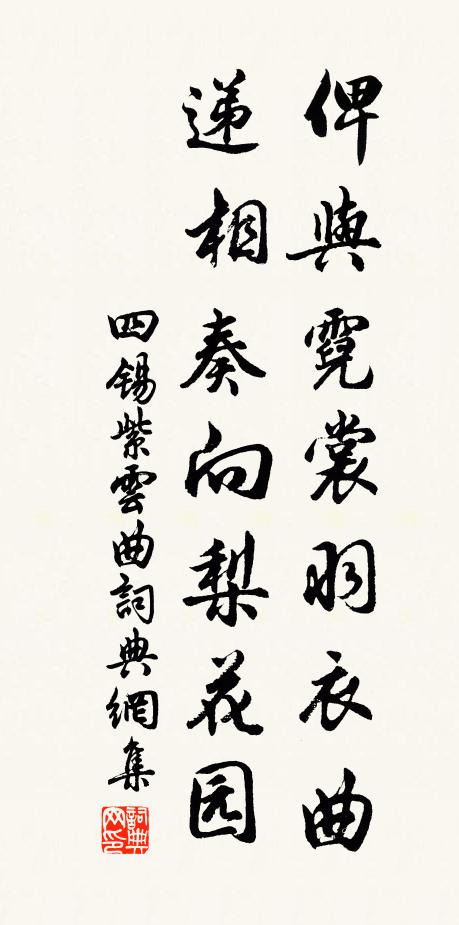 俾與霓裳羽衣曲
遞相奏向梨花园
四錫紫雲曲詞典網集
詞典
网印